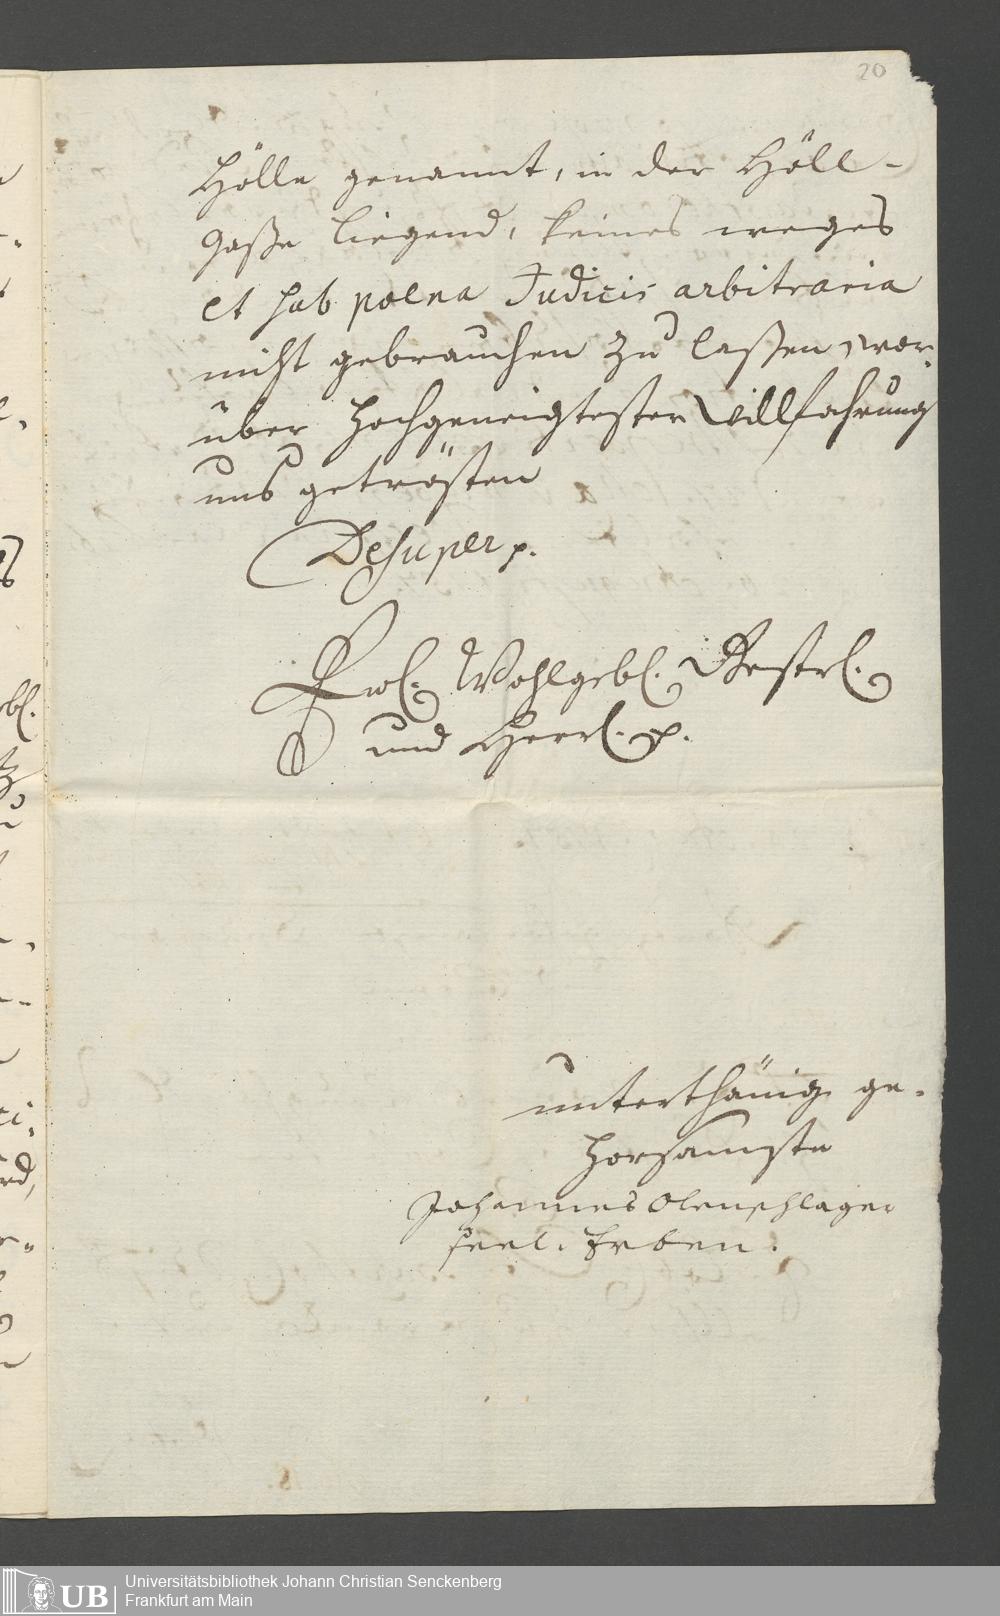 20
Hölle genannt, in der Höll-
Gaße liegend, keines weeges
et sub poena Judicis arbitraria
nicht gebrauchen zu laßen, wor-
über Hochgeneigtester Willfahrung
uns getrösten
Desuper p.
Ewl. Wohlgebl. Gestrl.
und Herrl. p.
unterthänig ge-
horsamste
Johannes Olenschlager
seel. Erben.
UB Universitätsbibliothek Johann Christian Senckenberg
Frankfurt am Main